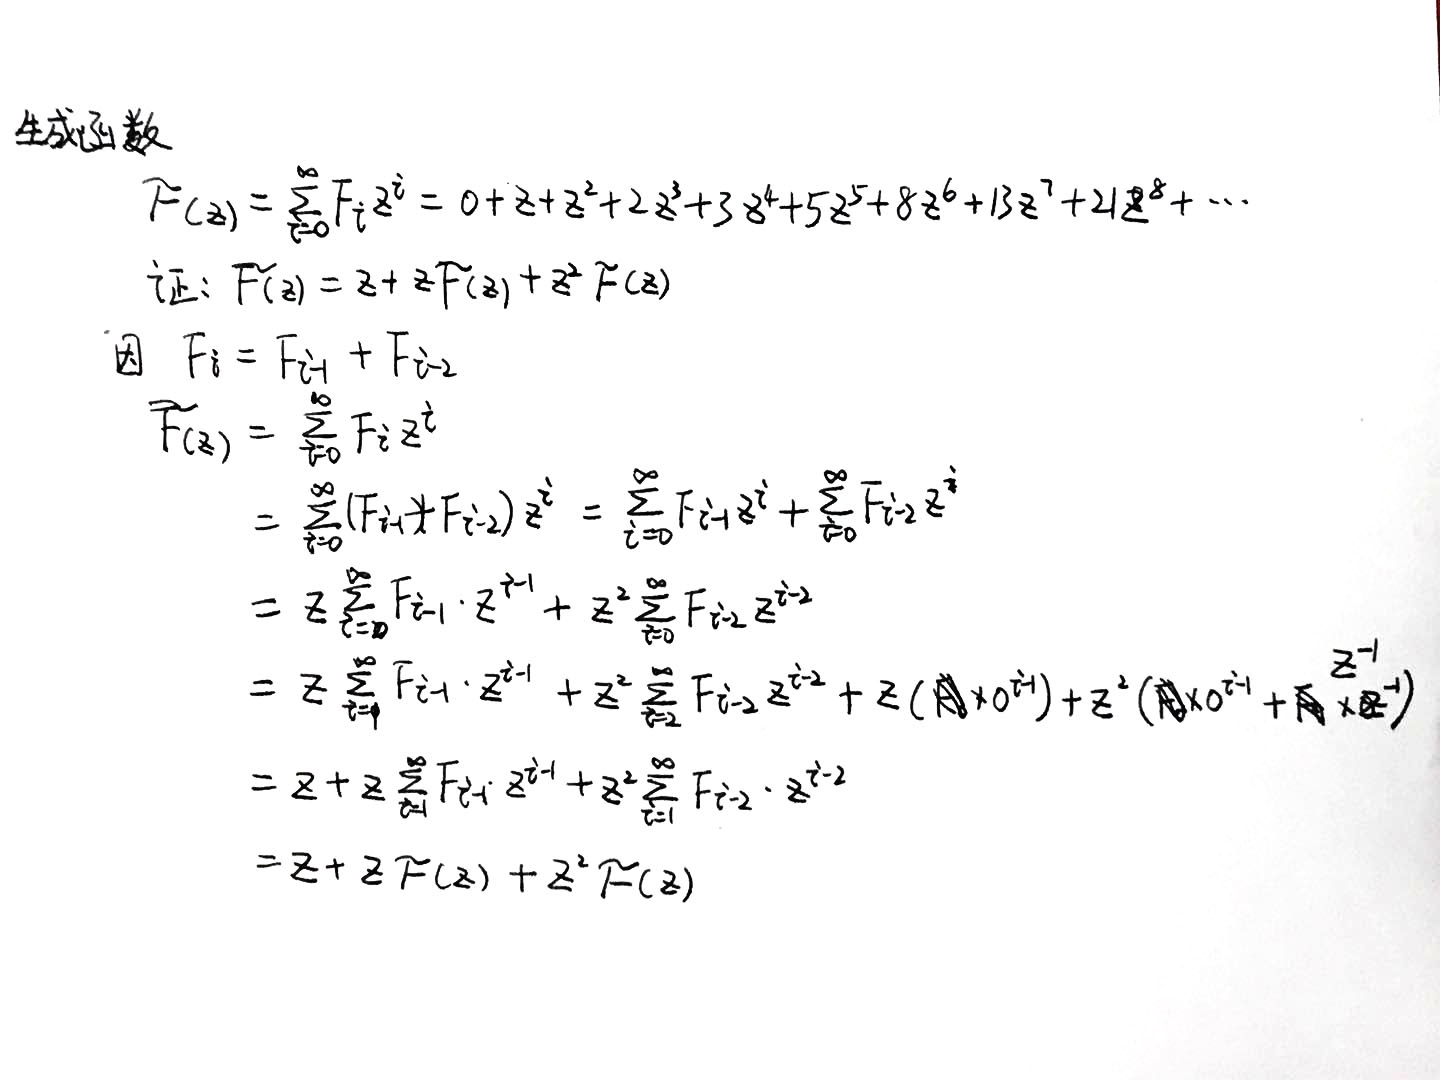 生成函数
F(z) = ∑_{i=0}^{∞} F_i z^i = 0+z+z²+2z³+3z⁴+5z⁵+8z⁶+13z⁷+21z⁸+⋯
证: F(z) = z+zF(z)+z²F(z)
因 F_i = F_{i-1} + F_{i-2}
F(z) = ∑_{i=0}^{∞} F_i z^i
= ∑_{i=0}^{∞} (F_{i-1}+F_{i-2}) z^i = ∑_{i=0}^{∞} F_{i-1} z^i + ∑_{i=0}^{∞} F_{i-2} z^i
= z ∑_{i=0}^{∞} F_{i-1} · z^{i-1} + z² ∑_{i=0}^{∞} F_{i-2} z^{i-2}
= z ∑_{i=1}^{∞} F_{i-1} · z^{i-1} + z² ∑_{i=2}^{∞} F_{i-2} z^{i-2} + z( ×0^{i-1}) + z²( ×0^{i-1} + × z^{-1})
= z + z ∑_{i=1}^{∞} F_{i-1} · z^{i-1} + z² ∑_{i=1}^{∞} F_{i-2} · z^{i-2}
= z + z F(z) + z² F(z)